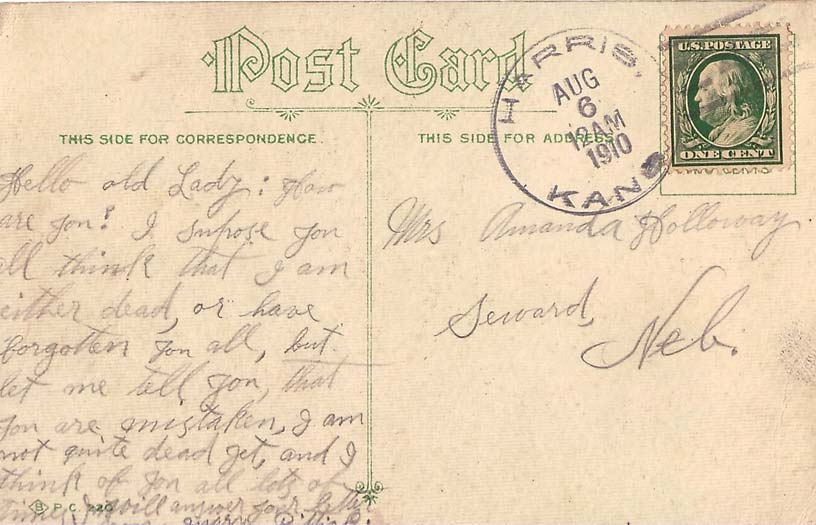 Post Card
THIS SIDE FOR CORRESPONDENCE.
THIS SIDE FOR ADDRESS.
HARRIS,
AUG
6
12AM
1910
KANS
U.S. POSTAGE
ONE CENT
Hello old Lady: How
are you? I supose you
all think that I am
either dead, or have
forgotten you all, but
let me tell you, that
you are mistaken, I am
not quite dead yet, and I
think of you all lots of
times, I will answer your letter
Mrs Amanda Holloway
Seward,
Neb.
P.C. 220